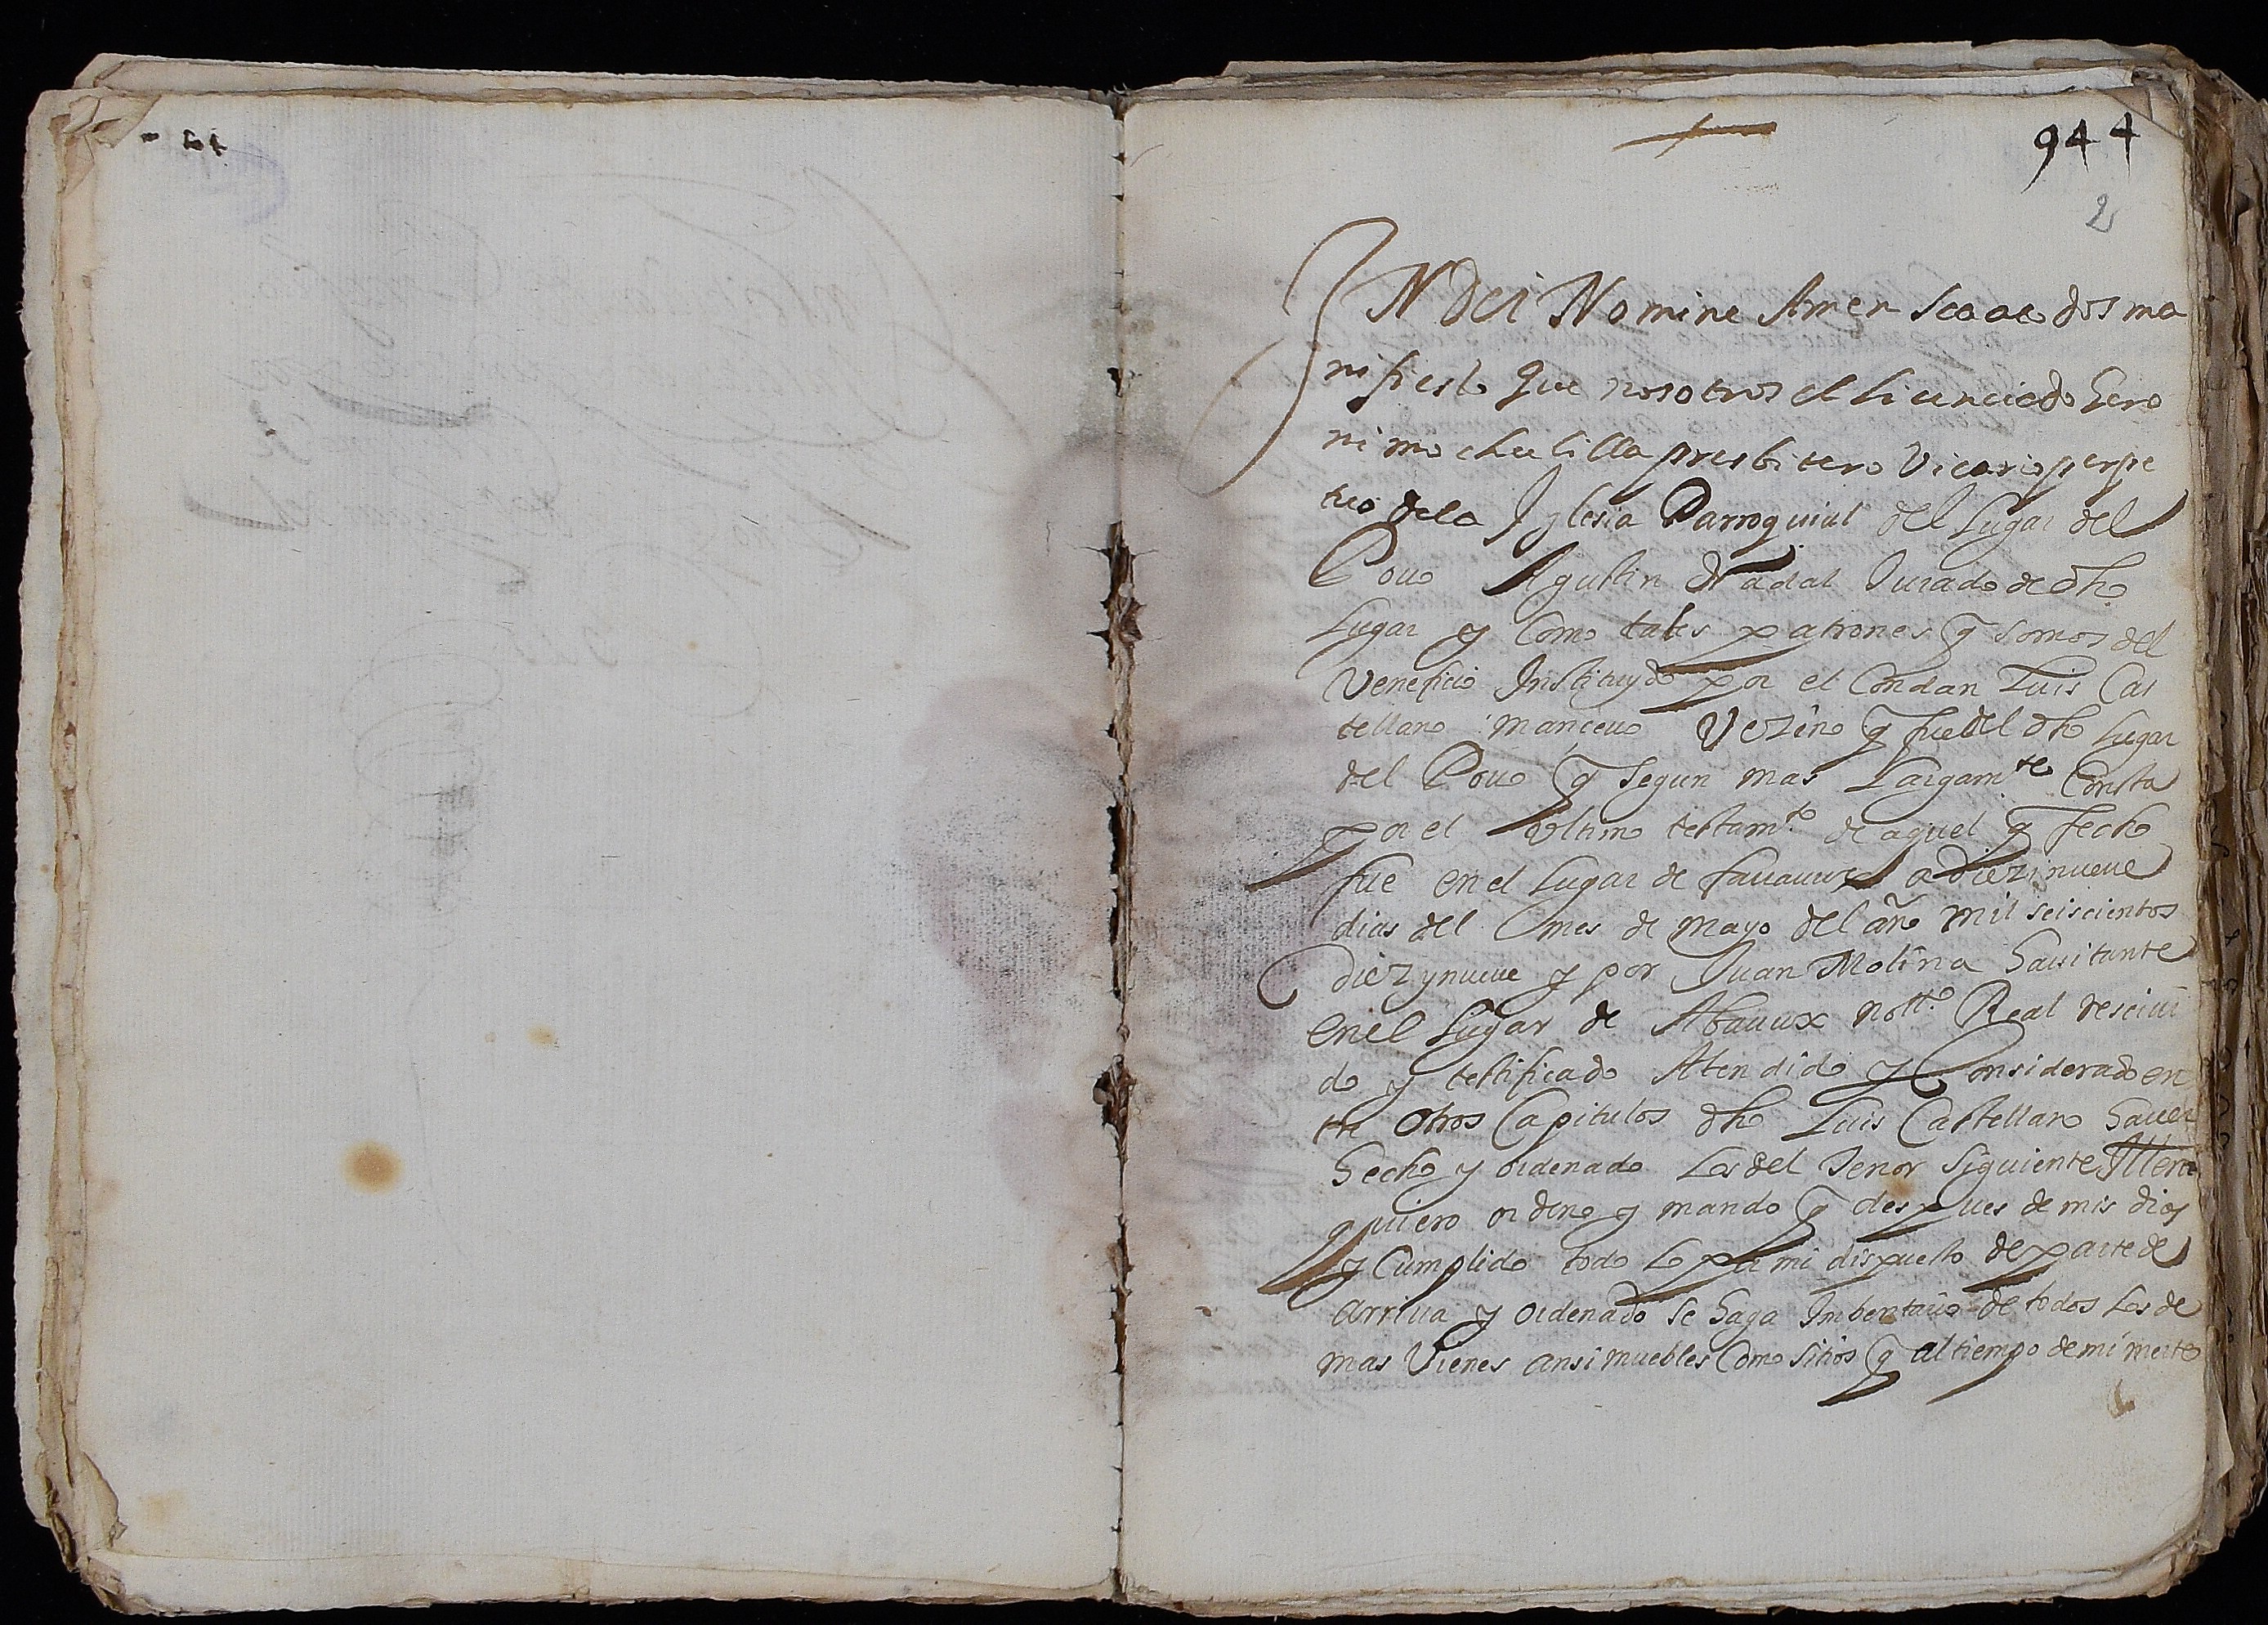 944
2
IN Dei Nomine Amen sea a todos ma
nifiesto que nosotros el licenciado Gero
nimo chulilla presbitero Vicario perpe
tuo dela Iglesia Parroquial del Lugar del
Pouo Agustin Nadal Jurado de dho
Lugar y Como tales patrones q somos del
Veneficio Instituydo por el Condan Luis Cas
tellano manceuo Vezino q fue del dho Lugar
del Pouo q segun mas Largamte Consta
por el Vltimo testamto de aquel q fecho
fue en el Lugar de a diezinueue
dias del mes de Mayo del año mil seiscientos
diez y nueue y por Juan Molina hauitante
en el Lugar de Abauux nottº Real resciui
do y testificado Atendido y Considerado en
tre otros Capitulos dho Luis Castellano hauer
hecho y ordenado Los del Tenor Siguiente Ittem
quiero ordeno y mando q despues de mis dias
y Cumplido todo Lo por mi dispuesto de parte de
arriua y ordenado se haga Imbentario de todos Los de
mas Vienes ansi muebles Como sitios q al tiempo de mi muerte